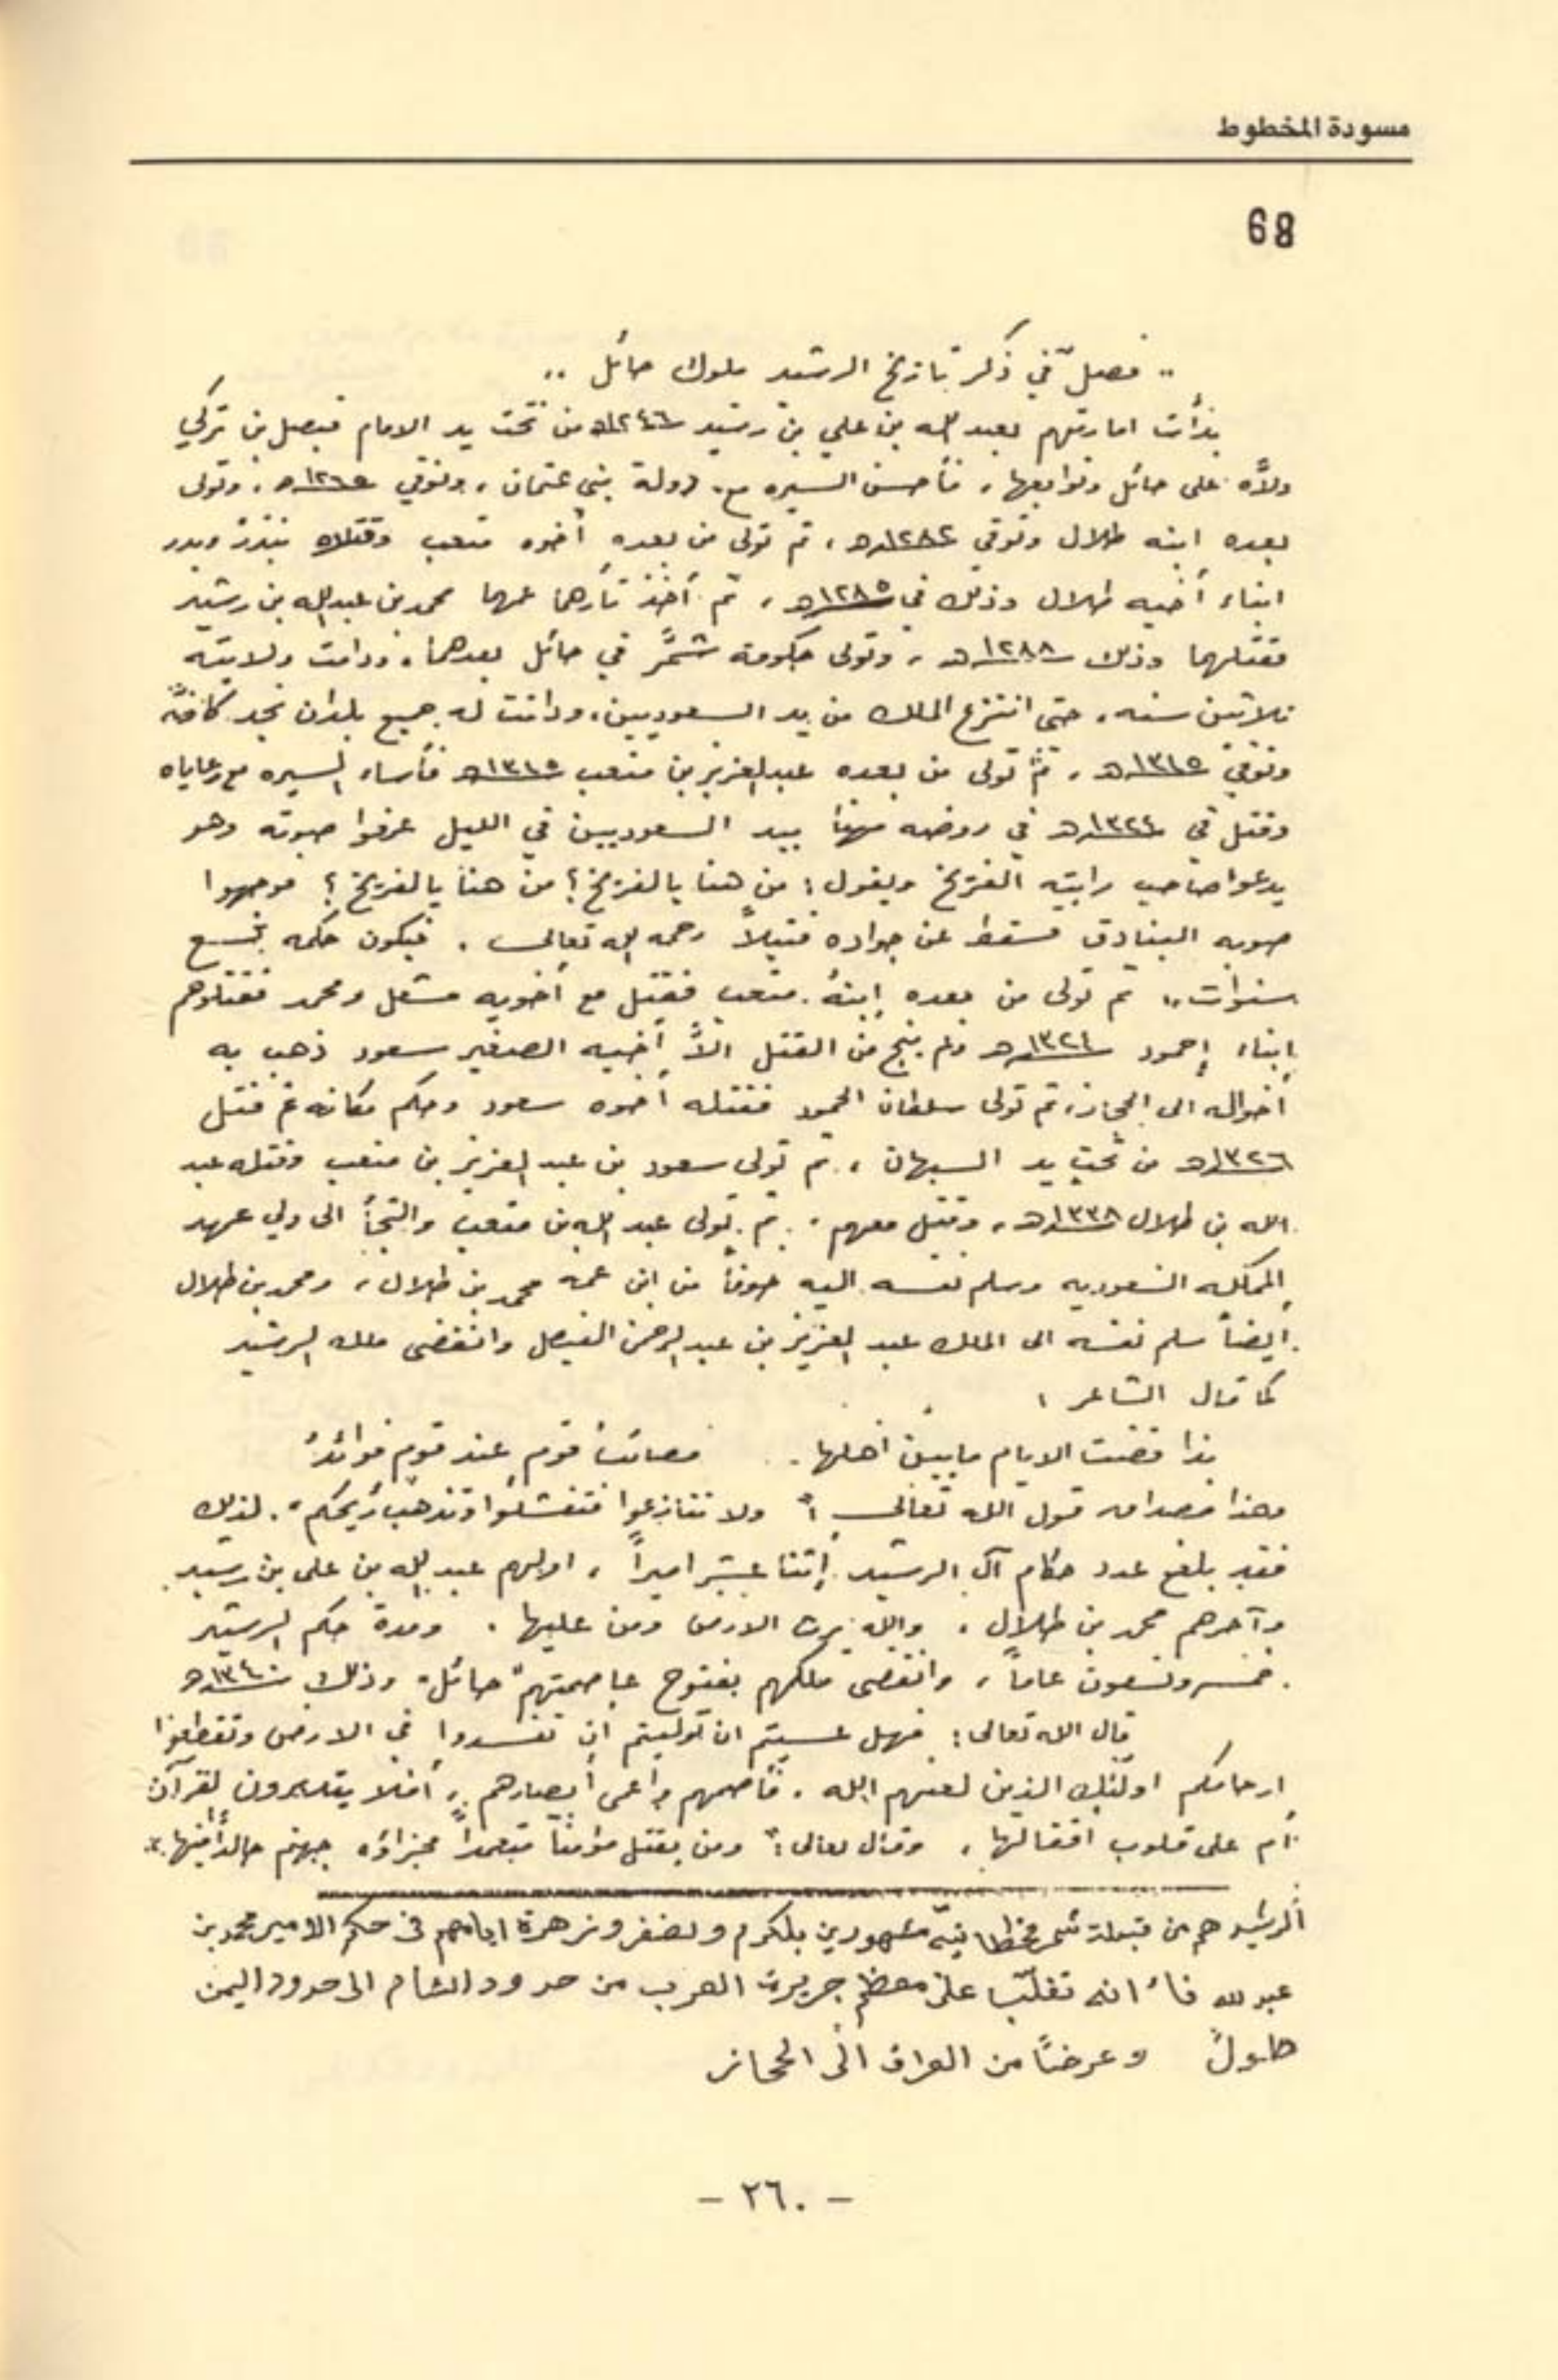 مسودة المخطوط
68
.. فصلٌ في ذكر تاريخ الرشيد ملوك حائل ..
بدأت امارتهم بعبد الله بن علي بن رشيد ١٢٤٦هـ من تحت يد الامام فيصل بن تركي
ولاَّه على حائل وتوابعها، فأحسن السيره مع دولة بني عثمان، وتوفي ١٢٦٥هـ، وتولى
بعده ابنه طلال وتوفي ١٢٨٢هـ، ثم تولى من بعده أخوه متعب وقتلاه بندر وبدر
ابناء أخيه طلال وذلك في ١٢٨٥هـ، ثم أخذ ثأرهما عمهما محمد بن عبدالله بن رشيد
فقتلهما وذلك ١٢٨٨هـ، وتولى حكومة شمَّر في حائل بعدهما، ودامت ولايته
ثلاثين سنه، حتى انتزع الملك من يد السعوديين، ودانت له جميع بلدان نجد كافَّه
وتوفي ١٣١٥هـ، ثم تولى من بعده عبدالعزيز بن متعب ١٣١٥هـ فأساء السيره مع رعاياه
وقتل في ١٣٢٤هـ في روضه مهنا بيد السعوديين في الليل عرفوا صوته وهو
يدعوا صاحب رايته الفريخ ويقول: من هنا يالفريخ؟ من هنا يالفريخ؟ فوجهوا
صوبه البنادق فسقط عن جواده قتيلاً رحمه الله تعالى. فيكون حكمه تسع
سنوات،، ثم تولى من بعده إبنهُ متعب فقتل مع أخويه مشعل ومحمد فقتلوهم
إبناء إحمود ١٣٢٤هـ ولم ينج من القتل الاَّ أخيه الصغير سعود ذهب به
أخواله الى الحجاز، ثم تولى سلطان الحمود فقتله أخوه سعود وحكم مكانه ثم قتل
١٣٢٦هـ من تحت يد السبهان، ثم تولى سعود بن عبد العزيز بن متعب وقتله عبد
الله بن طلال ١٣٣٨هـ، وقتل معهم. ثم تولى عبد الله بن متعب والتجأ الى ولي عهد
المملكه السعوديه وسلم نفسه اليه خوفاً من ابن عمه محمد بن طلال، ومحمد بن طلال
ايضاً سلم نفسه الى الملك عبد العزيز بن عبد الرحمن الفيصل وانقضى ملك الرشيد
كما قال الشاعر:
بذا قضت الايام مابين أهلها.. مصائب قوم عند قوم فوائدُ
وهذا مصداق قول الله تعالى: "ولا تنازعوا فتفشلوا وتذهب ريحكم". لذلك
فقد بلغ عدد حكام آل الرشيد إثنا عشر اميراً، اولهم عبدالله بن علي بن رشيد
وآخرهم محمد بن طلال، والله يرث الارض ومن عليها. ومدة حكم الرشيد
خمس وتسعون عاماً، وانقضى ملكهم بفتوح عاصمتهم "حائل" وذلك ١٣٤٠هـ
قال الله تعالى: فهل عسيتم ان توليتم ان تفسدوا في الارض وتقطعوا
ارحامكم اولئك الذين لعنهم الله، فأصمهم واعمى أبصارهم، أفلا يتدبرون القرآن
أم على قلوب اقفالها، وقال تعالى: "ومن يقتل مؤمناً متعمداً فجزاؤه جهنم خالداً فيها".
الرشيد هم من قبيلة شمر قحطانيّه مشهورين بلكرم ولضفر وزهرة ايامهم في حكم الامير محمد بن
عبد الله فأنه تغلّب على معظم جزيرت العرب من حدود الشام الى حدود اليمن
طولً وعرضاً من العراق الى الحجاز
- ٢٦٠ -